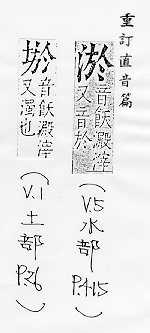 重訂直音篇
淤 音飫澱滓
又音於
(V.5 水部 P.415)
音飫澱滓
又濁也
(V.1 土部 P.26)